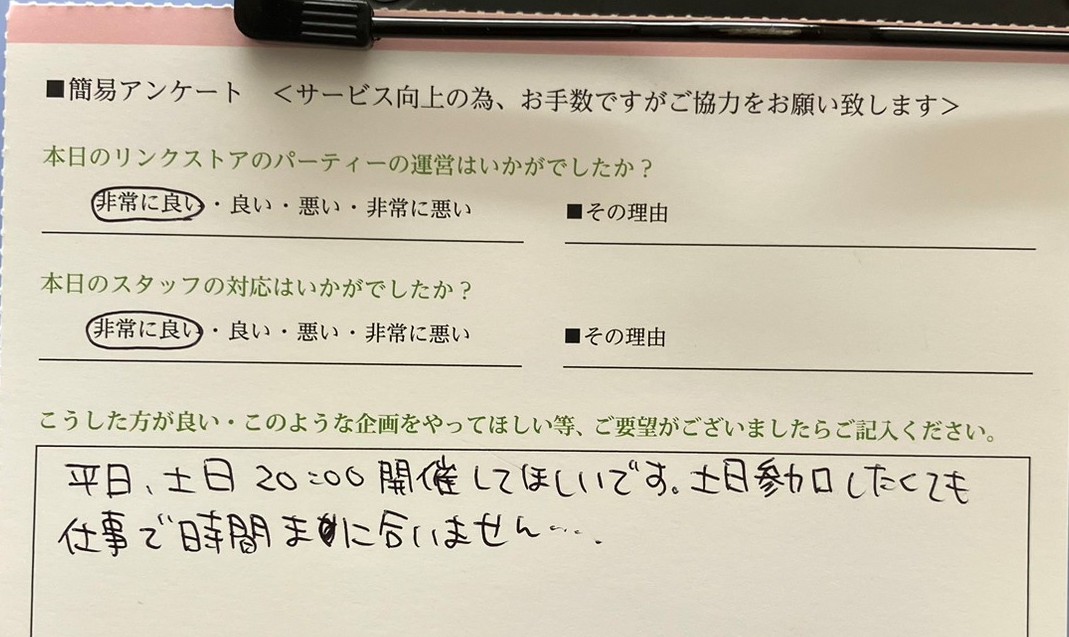 ■簡易アンケート ＜サービス向上の為、お手数ですがご協力をお願い致します＞
本日のリンクストアのパーティーの運営はいかがでしたか？
非常に良い・良い・悪い・非常に悪い ■その理由
本日のスタッフの対応はいかがでしたか？
非常に良い・良い・悪い・非常に悪い ■その理由
こうした方が良い・このような企画をやってほしい等、ご要望がございましたらご記入ください。
平日、土日20:00開催してほしいです。土日参加したくても
仕事で時間まに合いません….